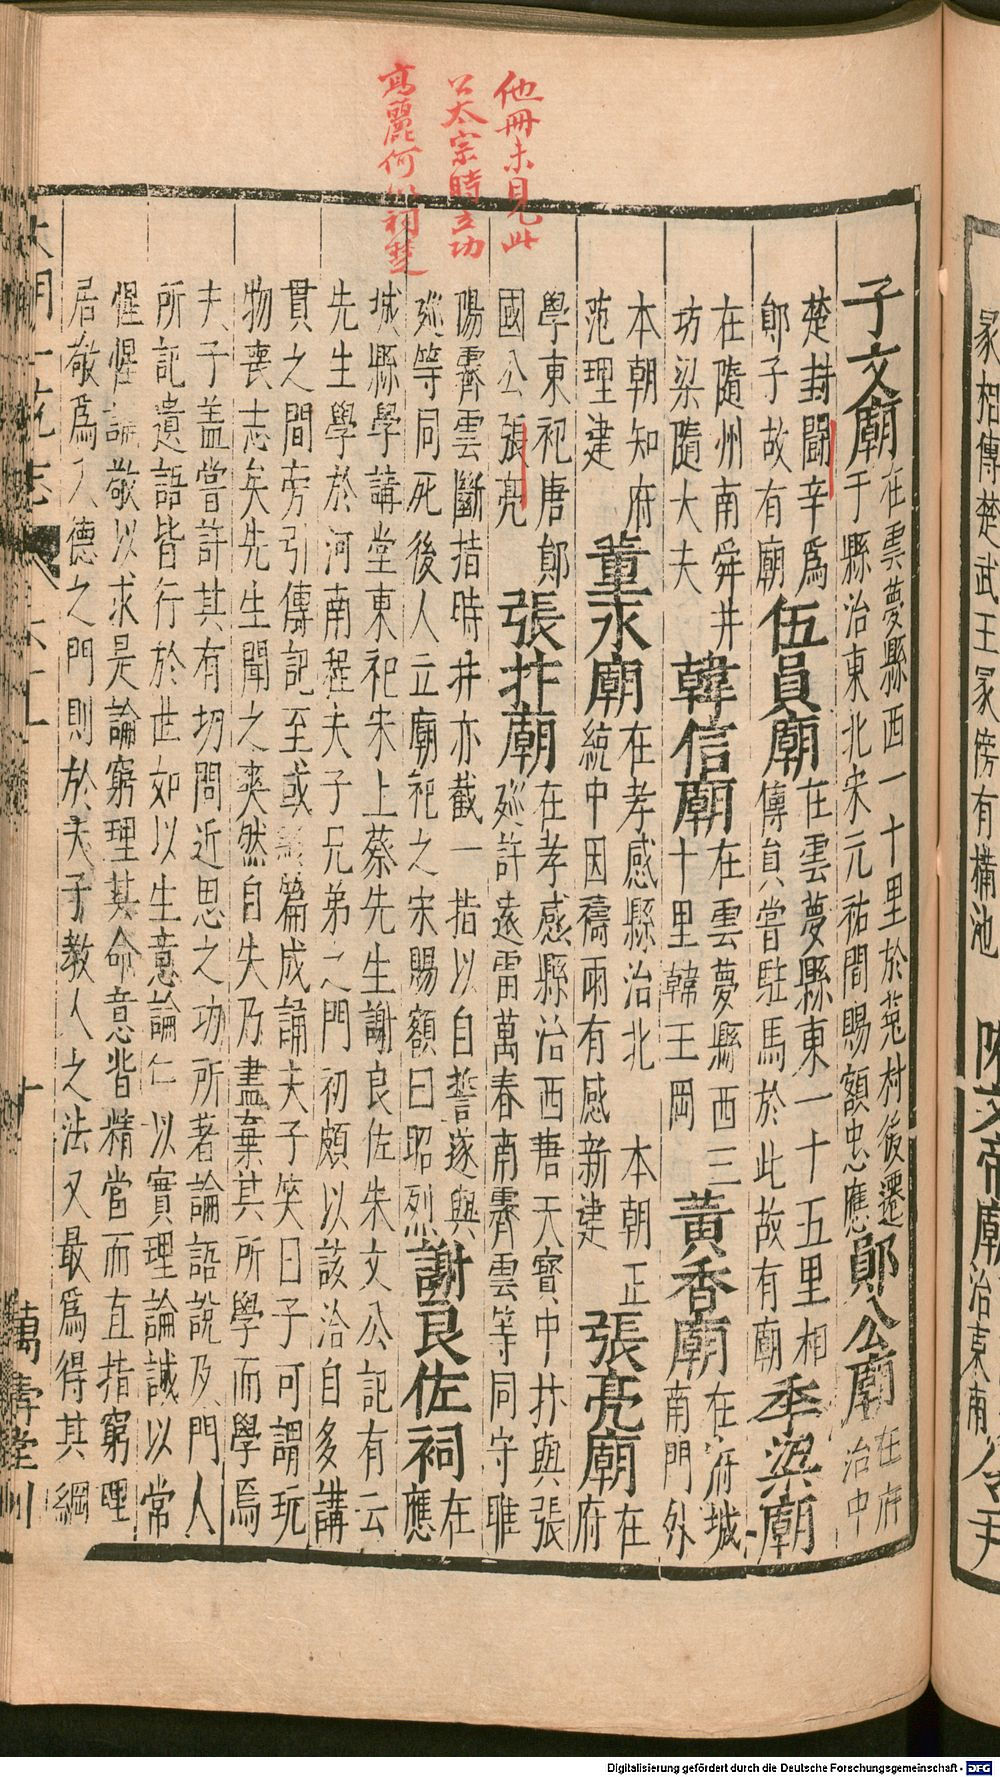 冢相傳楚武王冢傍有橫池
治東南
令尹
他冊未見此
公太宗時立功
高麗何以祠楚
子文廟
在雲夢縣西一十里於菟村後遷
于縣治東北宋元祐間賜額忠應
鄖公廟
在府
治中
楚封鬬辛爲
鄖子故有廟
伍員廟
在雲夢縣東一十五里相
傳員嘗駐馬於此故有廟
季梁廟
在隨州南舜井
坊梁隨大夫
韓信廟
在雲夢縣西三
十里韓王岡
黃香廟
在府城
南門外
本朝知府
范理建
董永廟
在孝感縣治北 本朝正
統中因禱雨有感新建
張亮廟
在
府
學東祀唐鄖
國公張亮
張抃廟
在孝感縣治西唐天寶中抃與張
廵許遠雷萬春南霽雲等同守睢
陽霽雲斷指時抃亦截一指以自誓遂與
廵等同死後人立廟祀之宋賜額曰昭烈
謝良佐祠
在
應
城縣學講堂東祀宋上蔡先生謝良佐朱文公記有云
先生學於河南程夫子兄弟之門初頗以該洽自多講
貫之間旁引傳記至或終篇成誦夫子笑曰子可謂玩
物喪志矣先生聞之爽然自失乃盡棄其所學而學焉
夫子盖嘗許其有切問近思之功所著論語說及門人
所記遺語皆行於世如以生意論仁以實理論誠以常
惺惺論敬以求是論窮理其命意皆精當而直指窮理
居敬爲入德之門則於夫子教人之法又最爲得其綱
大明一統志
六十一
十
萬壽堂刊
Digitalisierung gefördert durch die Deutsche Forschungsgemeinschaft - DFG